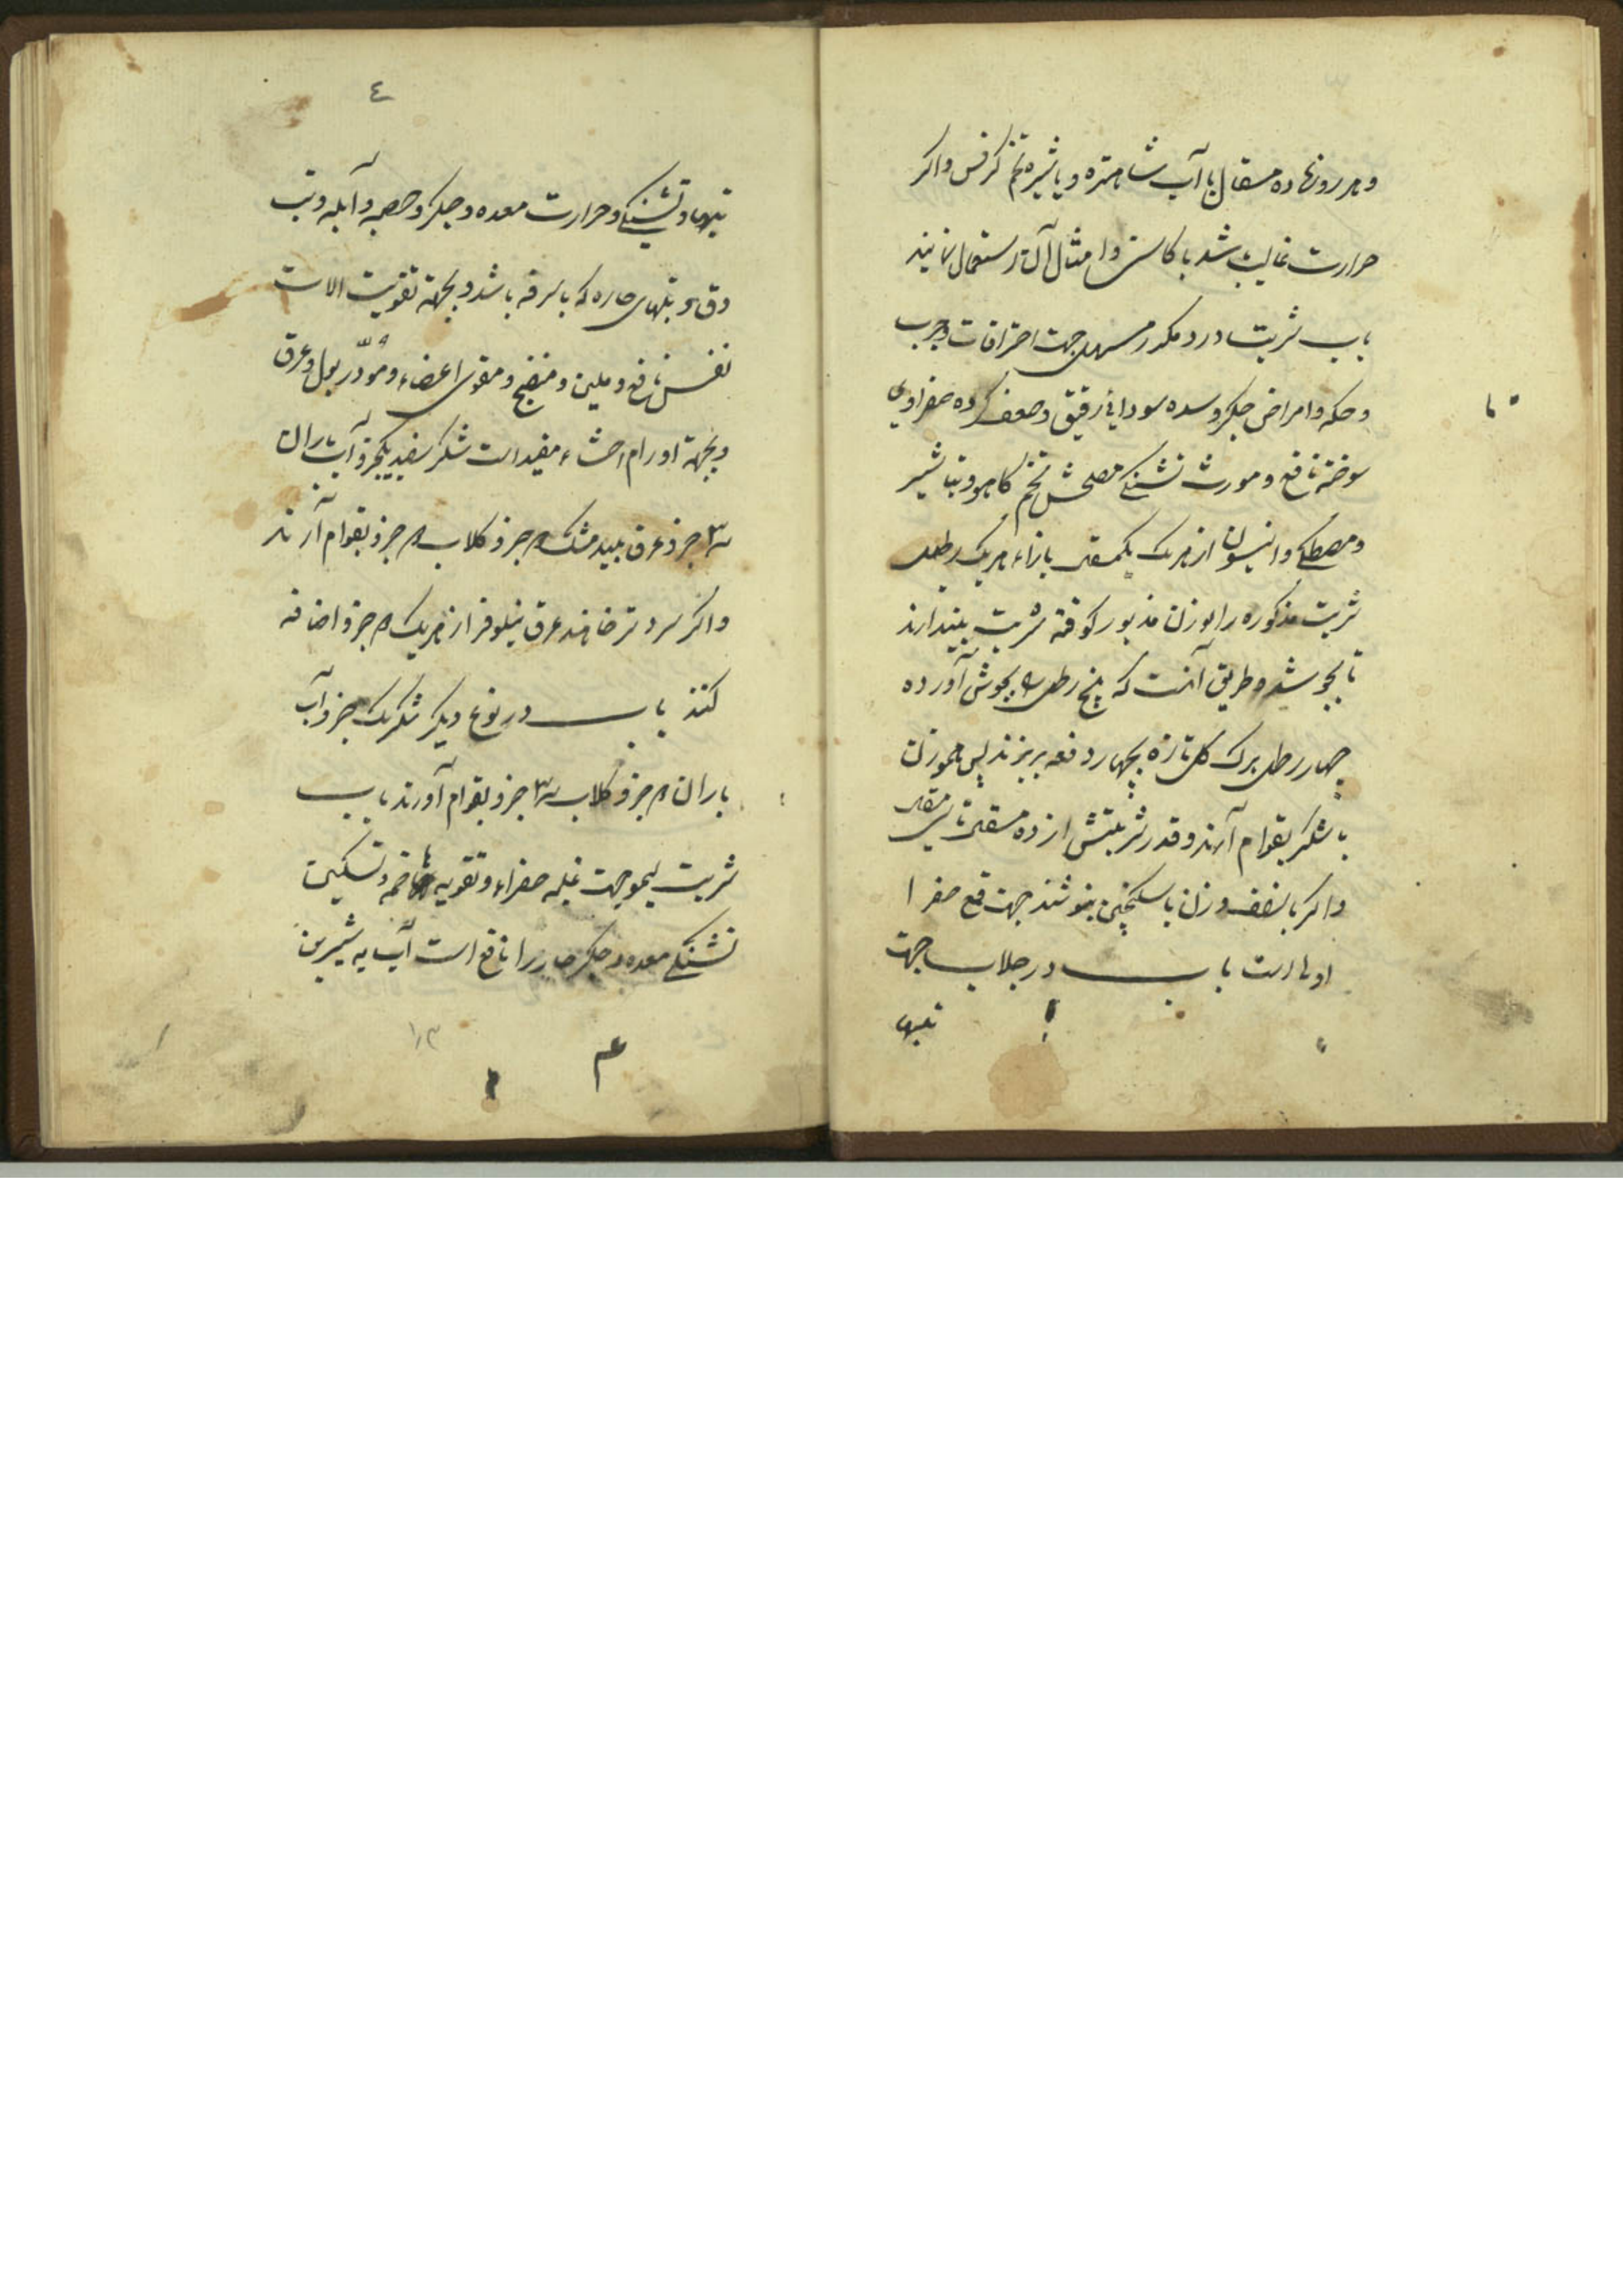 و هر روز نهار ده مسقال با آب شاهتره و یا شیره تخم کرفس واکر
حرارت غالب شد با کاسنی و امثال آن استعمال نمایند
باب شربت درد مکرر مسهل جهت احتراقات و جرب
و حکه و امراض جکر و سده سودای رقیق و صفراوی
سوخته نافع و مورث تشنکی مصلحش تخم کاهو و تباشیر
و مصطکی و انیسون از هر یک یکمسقل بازاء هر یک رطل
شربت مذکوره را بوزن مذبور کوفته بشربت بیندازند
تا بجوشد و طریق آنست که پنج رطل بجوش آورده
چهار رطل برک کل تازه بچهار دفعه بریزند پس هموزن
با شکر بقوام آرند و قدر شربتش از ده مسقل تا سی مسقل
واکر با نصف وزن با سکنجبین بنوشند جهت قمع صفرا
اولی است باب در جلاب جهت
تبهاء
٤
تبها و تشنکی و حرارت معده و جکر و حصبه و آبله و تب
دق و تبهای حاره که با سرفه باشد و بجهة تقویت الات
نفس نافع و ملین و منضج و مقوی اعضاء و مودّر بول و عرق
و بجهة اورام احشاء مفید است شکر سفید یکجزو آب باران
۳ جزو عرق بیدمشک ۲ جزو کلاب ۲ جزو بقوام آرند
واکر سرد تر خاهند عرق نیلوفر از هر یک ۲ جزو اضافه
کنند باب در نوع دیکر شکر یک جزو آب
باران ۲ جزو کلاب ۳ جزو بقوام آورند باب
شربت لیمو جهت غلبه صفراء و تقویه هاضمه و تسکین
تشنکی معده و جکر حار را نافع است آب به شیرین